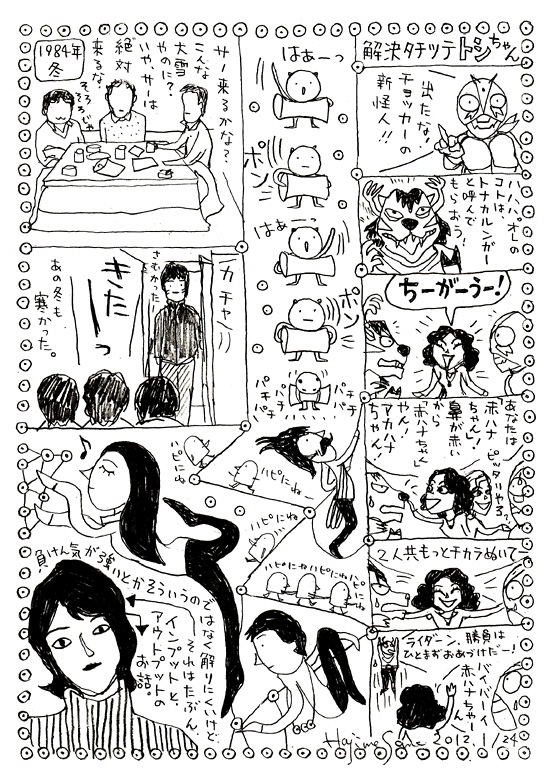 解決タチツテトシちゃん
出たな
チョッカーの
新怪人!!
ハハハ、オレの
コトは、
トナカルンガー
と呼んで
もらおう!
ちーがーうー!
あなたは
「赤ハナ
ちゃん」
鼻が赤い
から
「赤ハナちゃん」
ピッタリやろ?
やん!
アカハナ
ちゃん!
2人共もっとチカラぬいてー
ライダーン、勝負は
ひとまずおあづけだー!
バイバーイ
赤ハナちゃーん
はあーっ
ポン
はぁーっ
ポン
パチパチ
パチパチ
パチパチ
1984年
冬
サー来るかな?
こんな
大雪
やのに?
いや、サーは
絶対
来るな。
そろそろ
カチャ
さむかった
きたーっ
あの冬も
寒かった。
ハピにね
ハピにね
ハピにね
ハピにね
ハピにねハピにねハピにね
負けん気が強いとかそういうのではなく解りにくいけど、
それはたぶん
インプットと、
アウトプットの
お話。
Hajime Some 2012.1/24